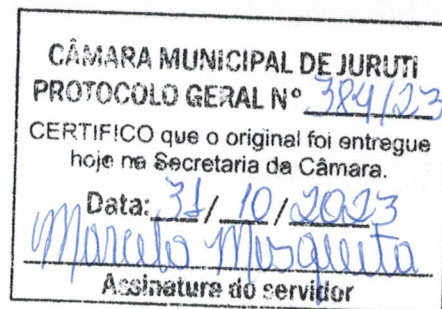 CÂMARA MUNICIPAL DE JURUTI
PROTOCOLO GERAL Nº 384/23
CERTIFICO que o original foi entregue
hoje na Secretaria da Câmara.
Data: 31/10/2023
Marcelo Mesquita
Assinatura do servidor